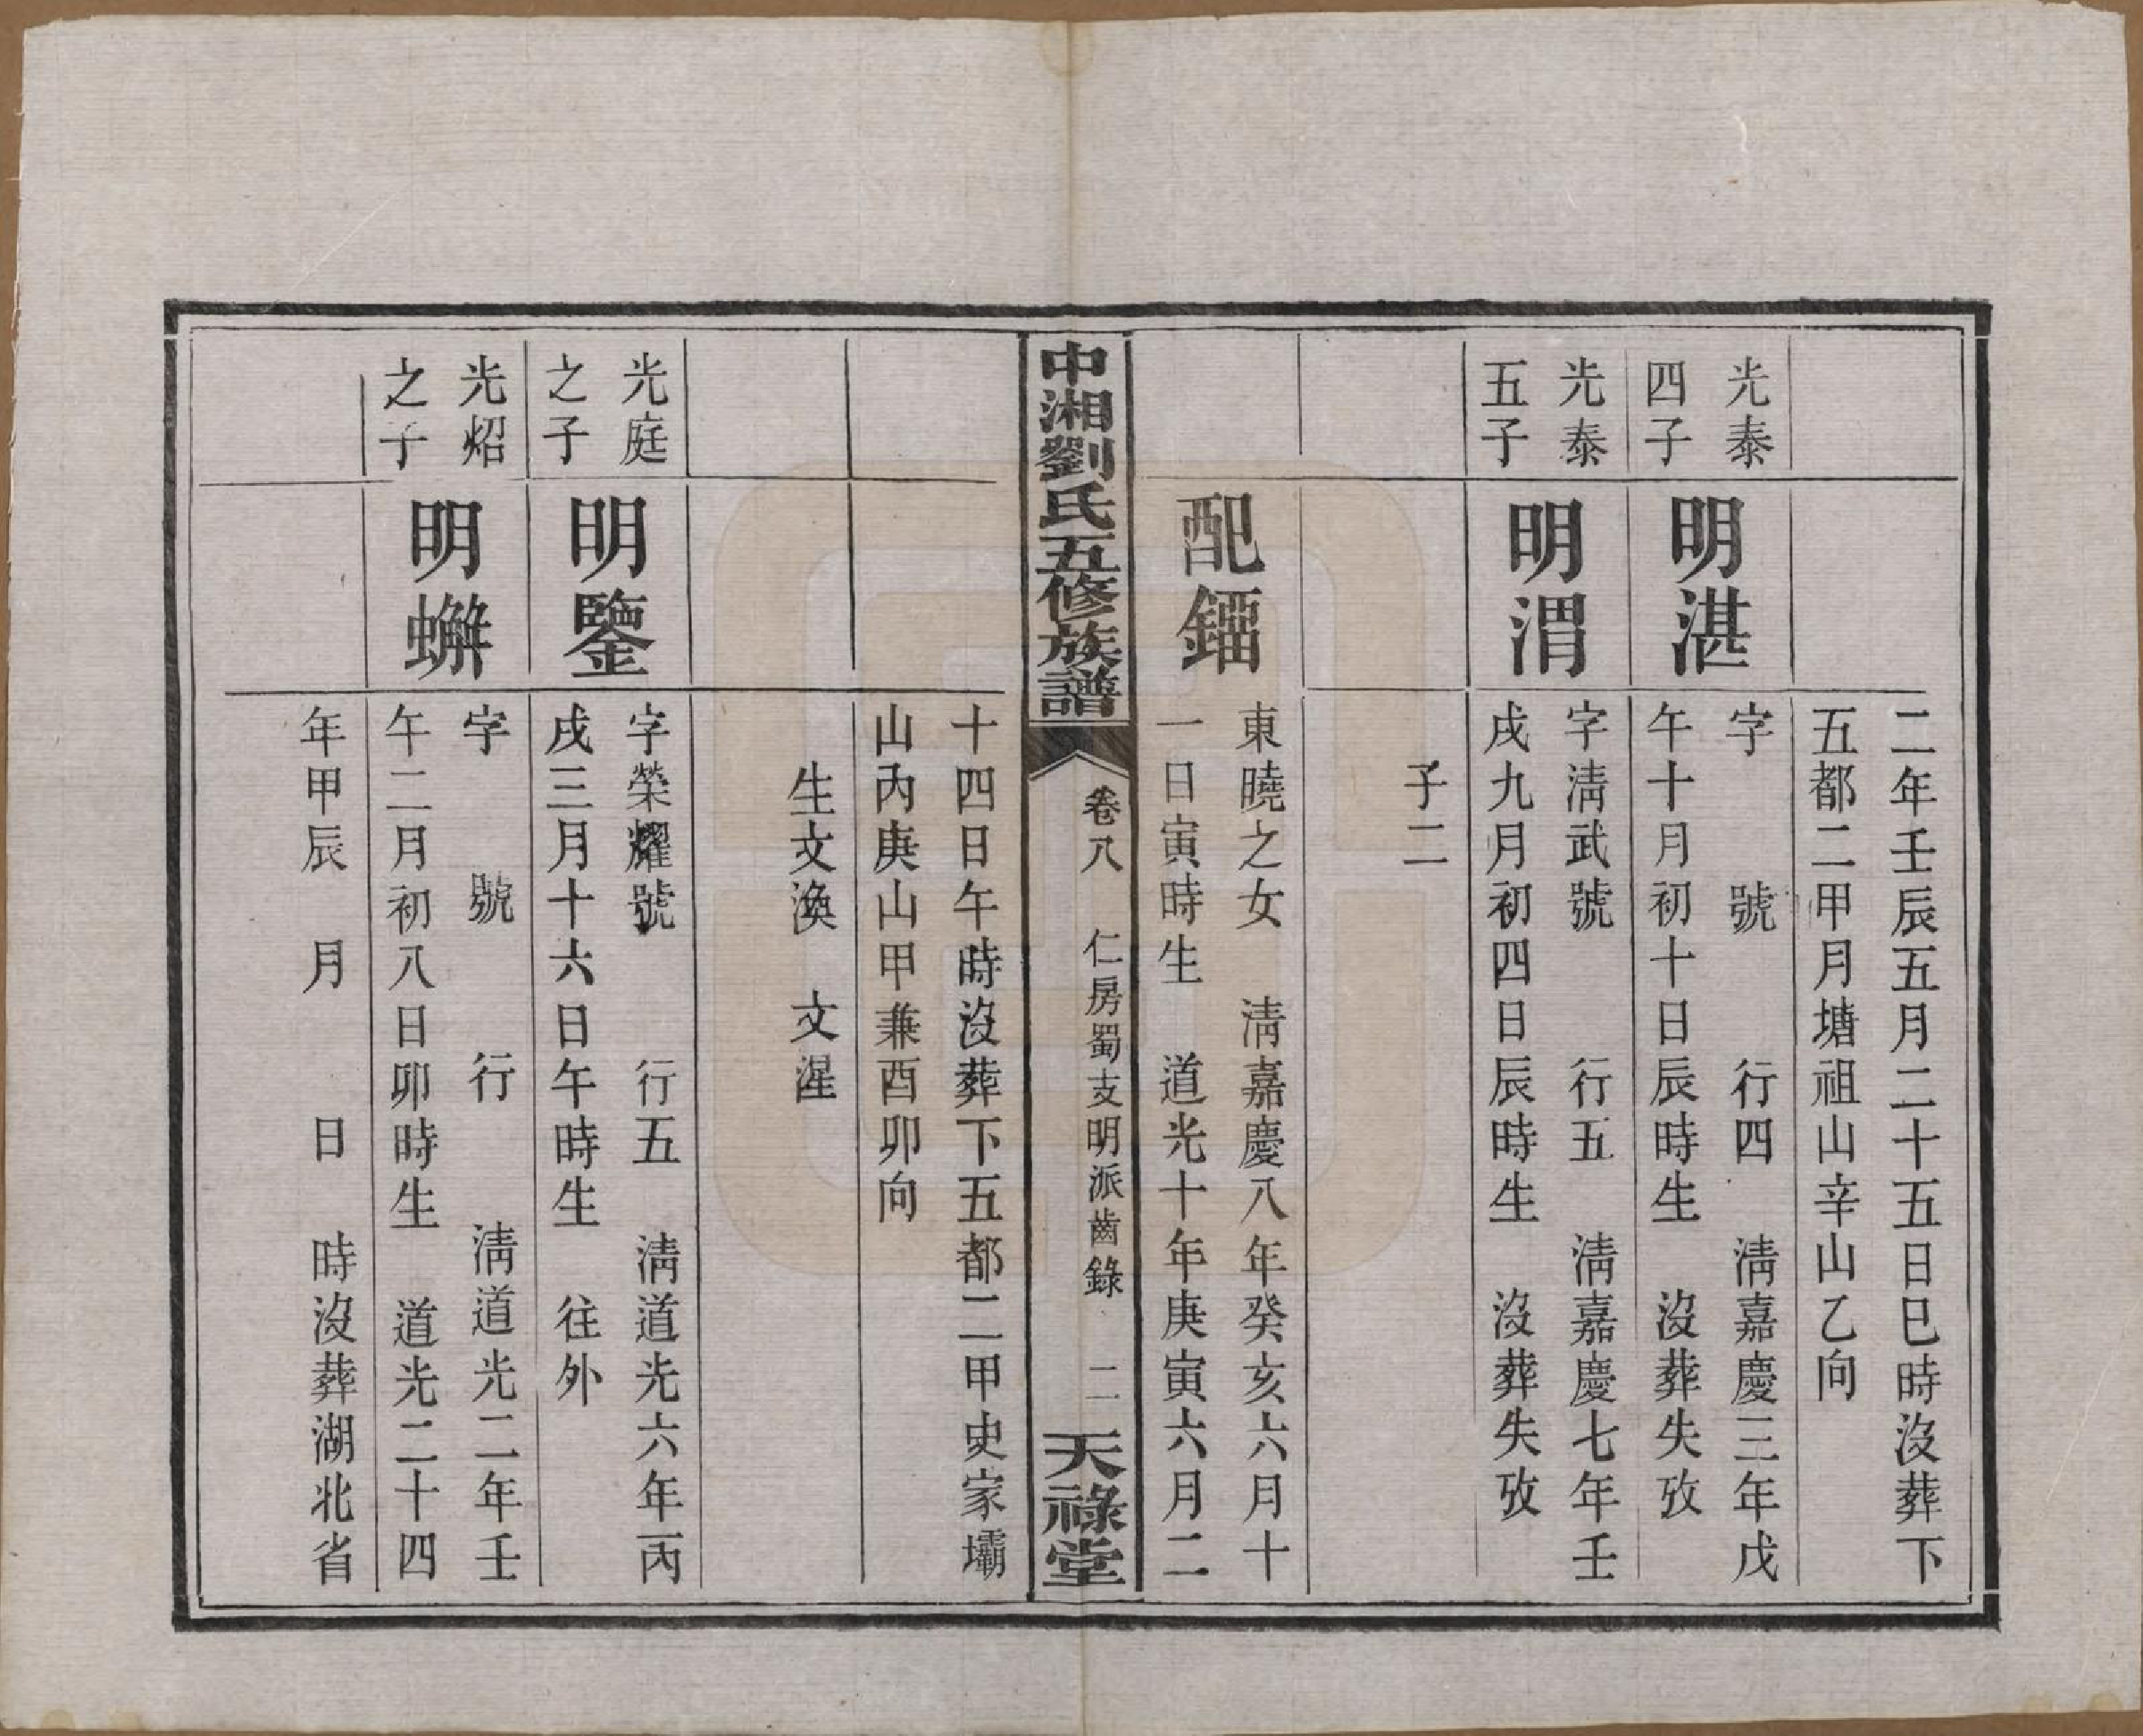 二年壬辰五月二十五日巳時沒葬下
五都二甲月塘祖山辛山乙向
光泰
四子
明湛
字　號　行四　淸嘉慶三年戊
午十月初十日辰時生　沒葬失攷
光泰
五子
明渭
字淸武號　行五　淸嘉慶七年壬
戌九月初四日辰時生　沒葬失攷
子二
配鐂
東曉之女　淸嘉慶八年癸亥六月十
一日寅時生　道光十年庚寅六月二
中湘劉氏五修族譜
卷八　仁房蜀支明派齒錄　二
天祿堂
十四日午時沒葬下五都二甲史家壩
山內庚山甲兼酉卯向
生文渙　文湦
光庭
之子
明鑒
字榮耀號　行五　淸道光六年丙
戌三月十六日午時生　往外
光炤
之子
明
字　號　行　淸道光二年壬
午二月初八日卯時生　道光二十四
年甲辰　月　日　時沒葬湖北省